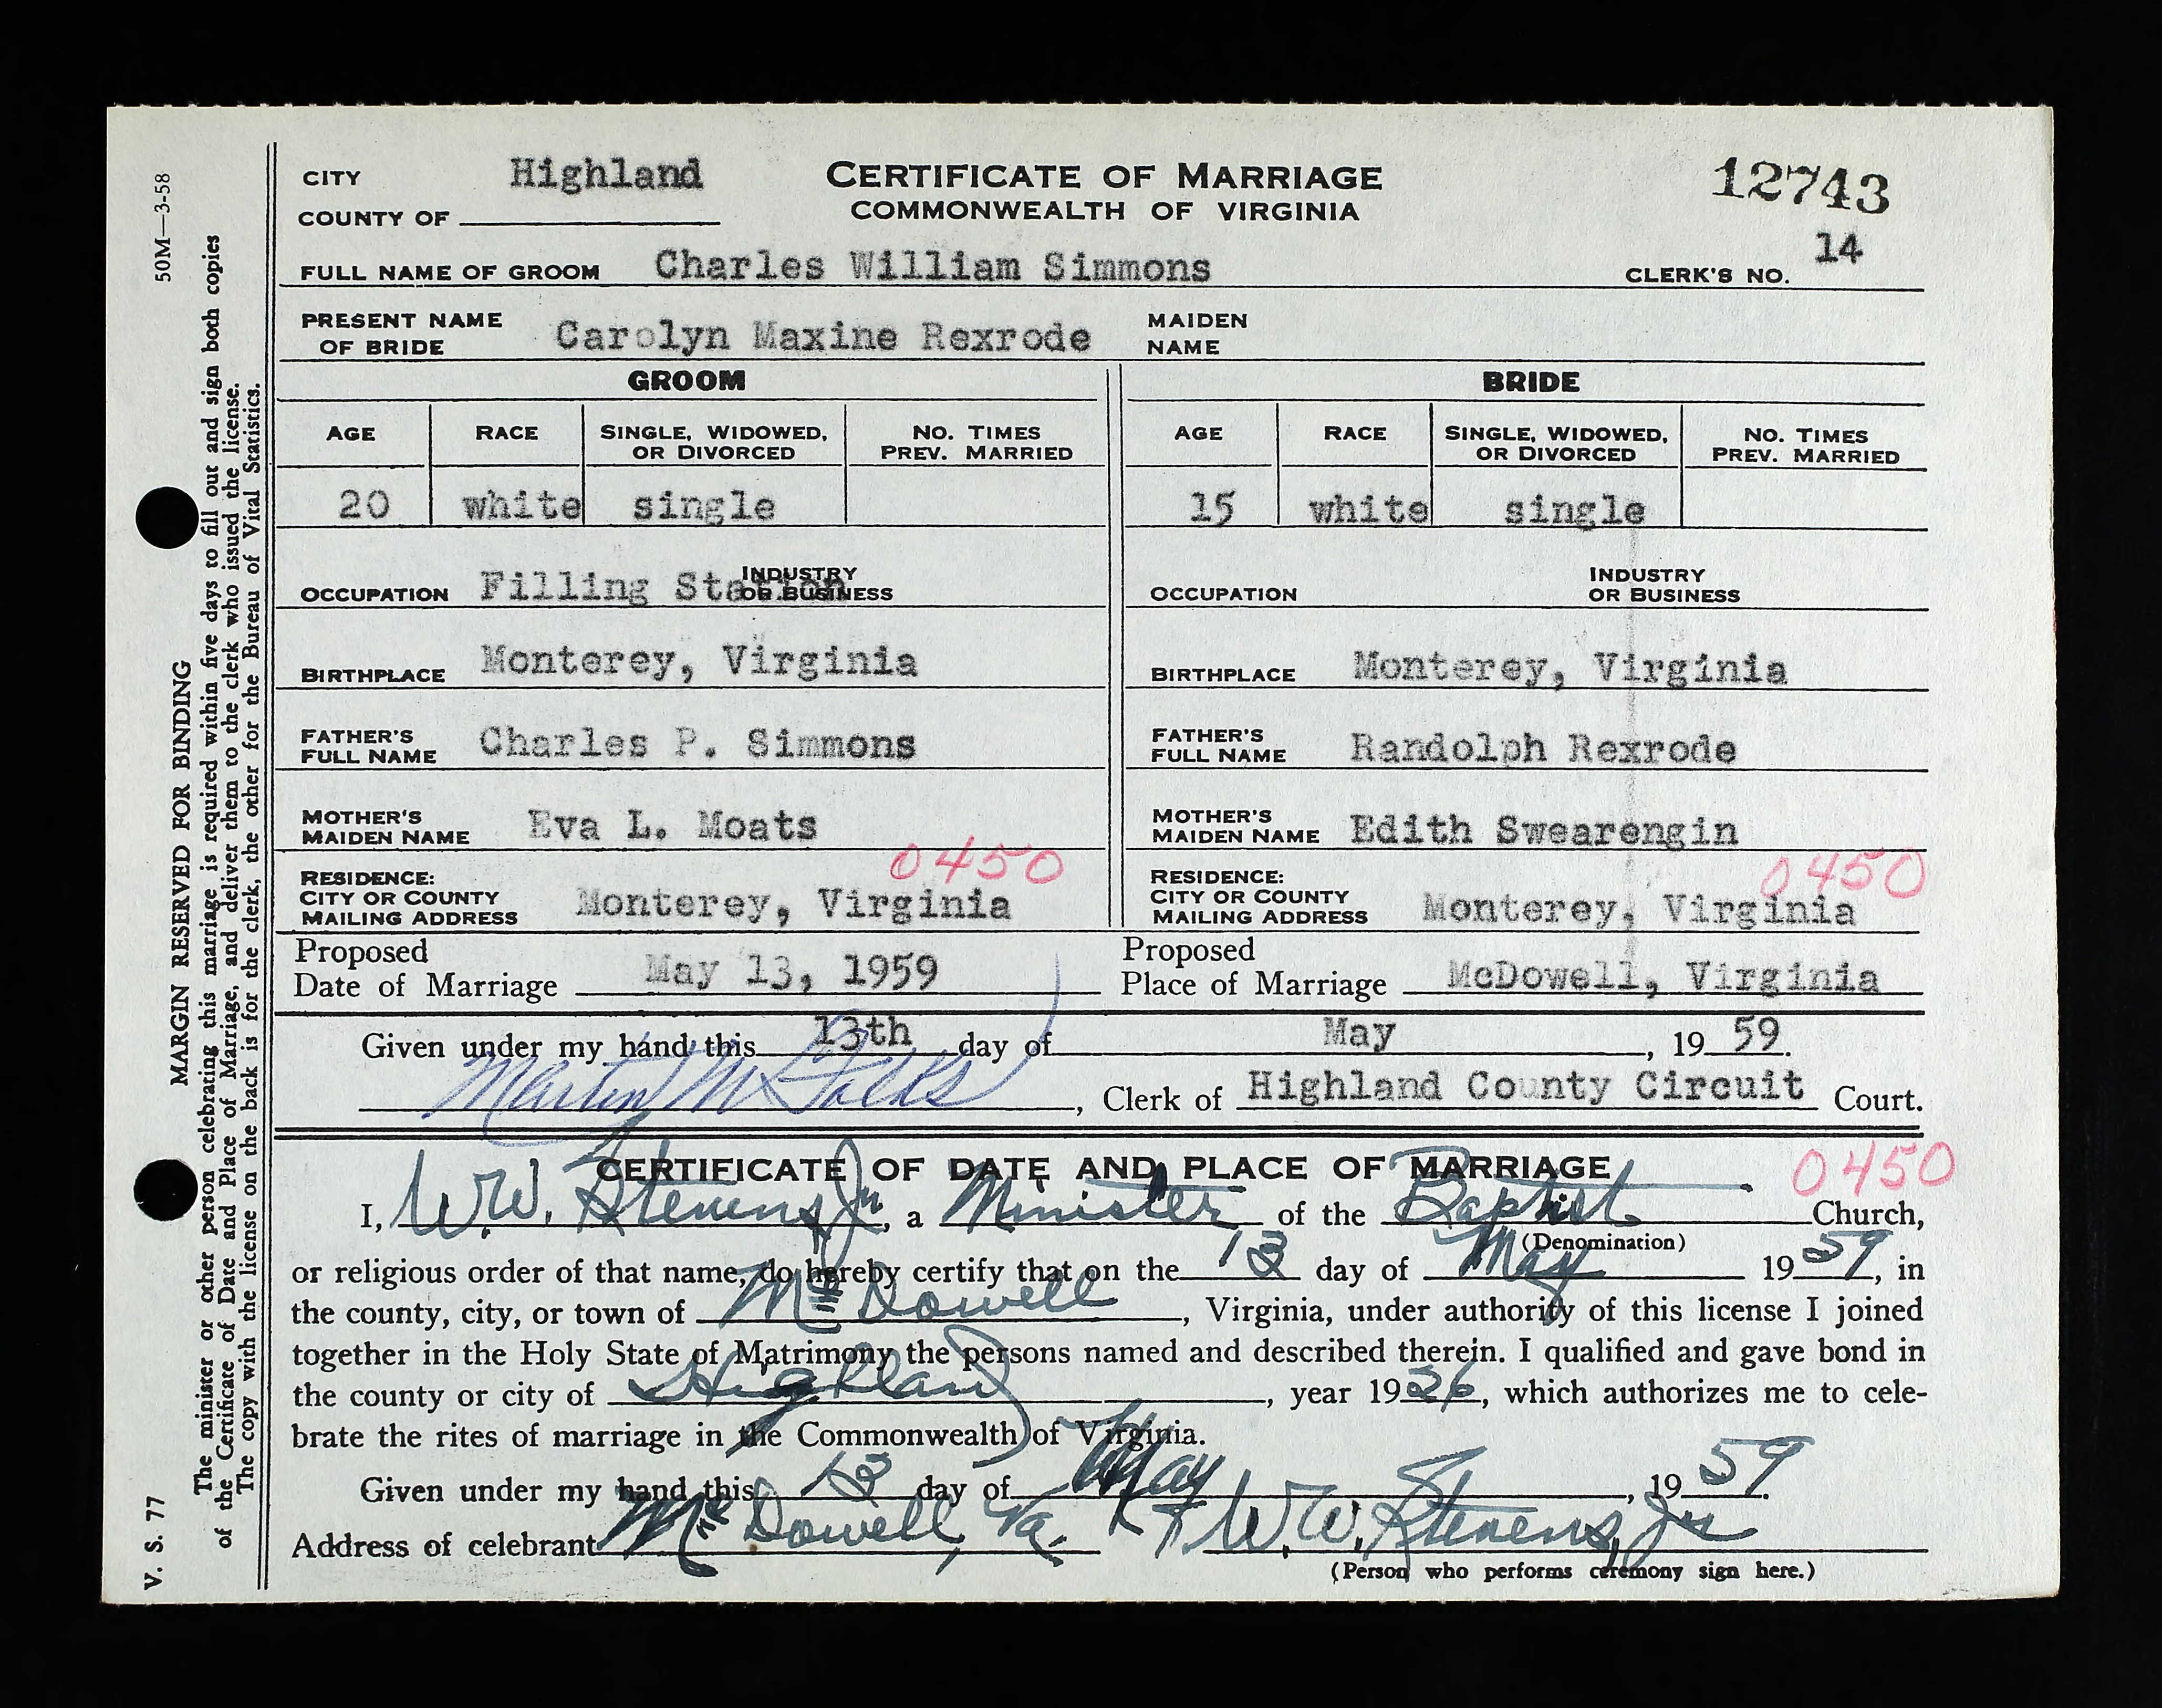 50M—3-58
MARGIN RESERVED FOR BINDING
The minister or other person celebrating this marriage is required within five days to fill out and sign both copies
of the Certificate of Date and Place of Marriage, and deliver them to the clerk who issued the license.
The copy with the license on the back is for the clerk, the other for the Bureau of Vital Statistics.
V. S. 77
CITY Highland
COUNTY OF
CERTIFICATE OF MARRIAGE
COMMONWEALTH OF VIRGINIA
12743
FULL NAME OF GROOM Charles William Simmons CLERK'S NO. 14
PRESENT NAME OF BRIDE Carolyn Maxine Rexrode MAIDEN NAME
GROOM BRIDE
AGE RACE SINGLE, WIDOWED, OR DIVORCED NO. TIMES PREV. MARRIED AGE RACE SINGLE, WIDOWED, OR DIVORCED NO. TIMES PREV. MARRIED
20 white single 15 white single
OCCUPATION Filling Station INDUSTRY OR BUSINESS OCCUPATION INDUSTRY OR BUSINESS
BIRTHPLACE Monterey, Virginia BIRTHPLACE Monterey, Virginia
FATHER'S FULL NAME Charles P. Simmons FATHER'S FULL NAME Randolph Rexrode
MOTHER'S MAIDEN NAME Eva L. Moats MOTHER'S MAIDEN NAME Edith Swearengin
0450 0450
RESIDENCE: CITY OR COUNTY MAILING ADDRESS Monterey, Virginia RESIDENCE: CITY OR COUNTY MAILING ADDRESS Monterey, Virginia
Proposed Date of Marriage May 13, 1959 Proposed Place of Marriage McDowell, Virginia
Given under my hand this 13th day of May, 19 59.
Martin M Folks, Clerk of Highland County Circuit Court.
CERTIFICATE OF DATE AND PLACE OF MARRIAGE
0450
I, W.W. Stevens Jr, a Minister of the Baptist Church,
(Denomination)
or religious order of that name, do hereby certify that on the 13 day of May 19 59, in
the county, city, or town of McDowell, Virginia, under authority of this license I joined
together in the Holy State of Matrimony the persons named and described therein. I qualified and gave bond in
the county or city of Highland, year 19 26, which authorizes me to cele-
brate the rites of marriage in the Commonwealth of Virginia.
Given under my hand this 13 day of May, 19 59.
Address of celebrant McDowell, Va. W.W. Stevens, Jr
(Person who performs ceremony sign here.)